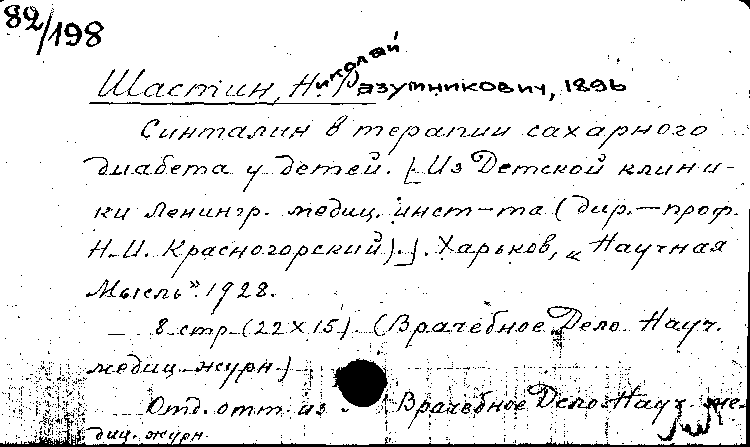 82/198
Шастин, Николай Разумникович, 1896
Синталин в терапии сахарного
диабета у детей. [Из Детской клини-
ки Ленингр. медиц. инст-та (дир.—проф.
Н.И. Красногорский).]. Харьков, „Научная
Мысль“. 1928.
— 8 стр (22×15). (Врачебное Дело. Науч.
медиц. журн)
Отд. отт. из Врачебное Дело. Науч. ме-
диц. журн.